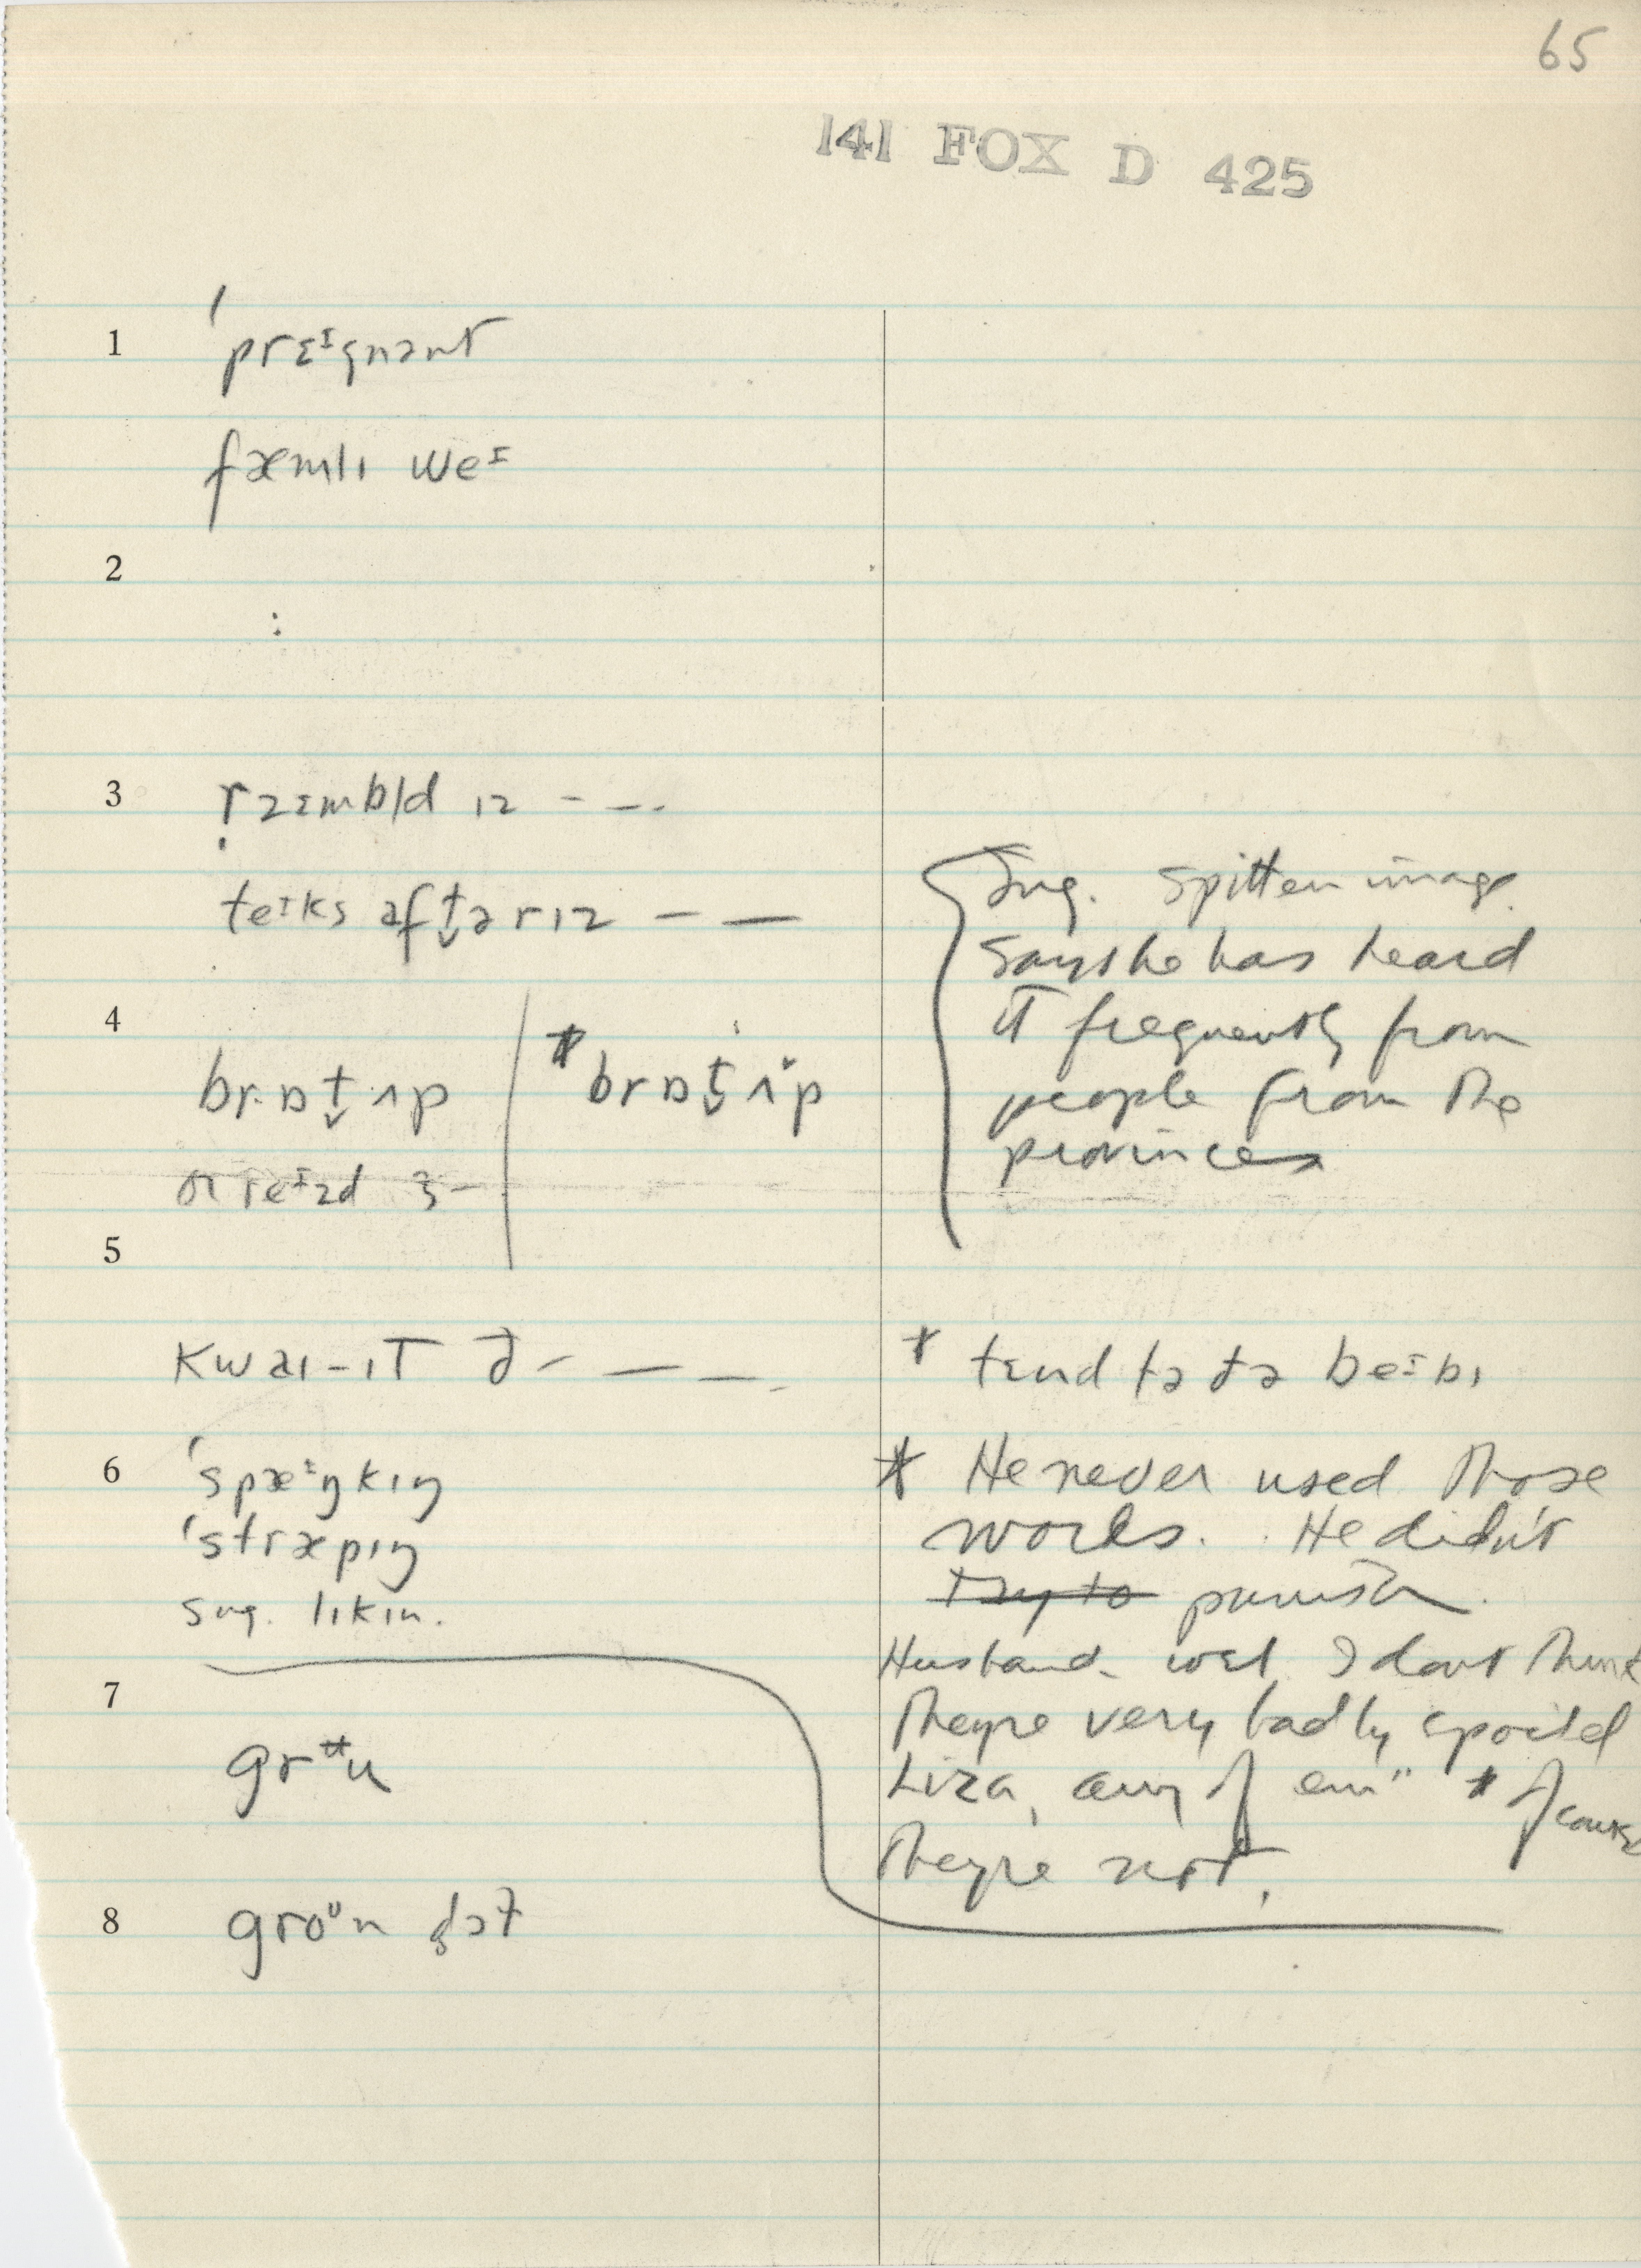 65
141 FOX D 425
1 ˈprɛᶦgnənt
fæmlɪ weᶦ
2
:
3 rzɪmbld ɪz - --
teɪks aft̬ərɪz — —
4
brɒt̬ ʌp
* brɒt̬ ʌp
or reᶦzd ɜ-
5
Sug. spitten image.
Says he has heard
it frequently from
people from the
provinces
kwaɪ-ɪt ə - — —
* tɛnd tə ðə beᶦbɪ
6 ˈspæᶦŋkɪŋ
ˈstræpɪŋ
sug. lɪkɪn.
* He never used those
words. He didn't
try to punish.
Husband. well I dont think
they're very badly spoiled
Liza, any of em" * of course
they're not.
7
grᵘu
8 groᵘn